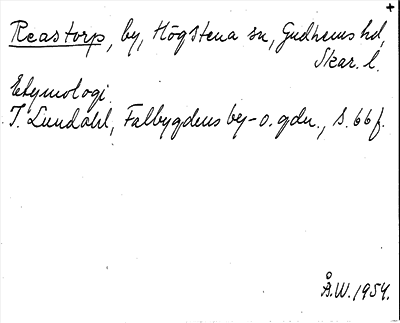 +
Reastorp, by, Högstena sn, Gudhems hd,
Skar. l.
Etymologi.
I. Lundahl, Falbygdens by- o. gdn., s. 66 f.
Å.W. 1954.